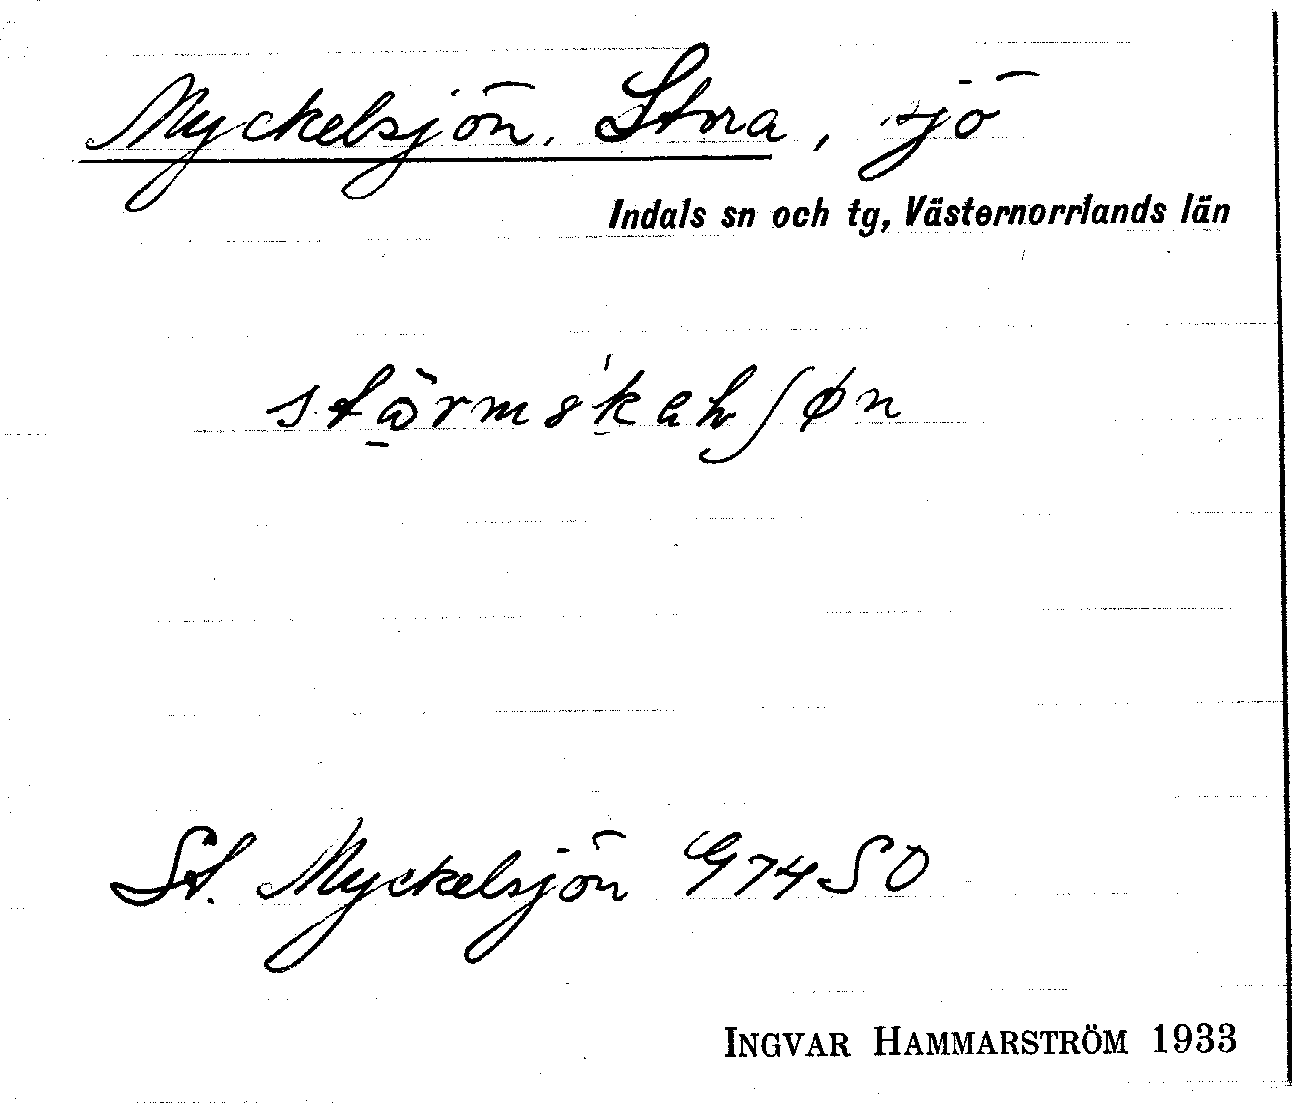 Myckelsjön, Stora, sjö
Indals sn och tg, Västernorrlands län
St. Myckelsjön G74SO
INGVAR HAMMARSTRÖM 1933